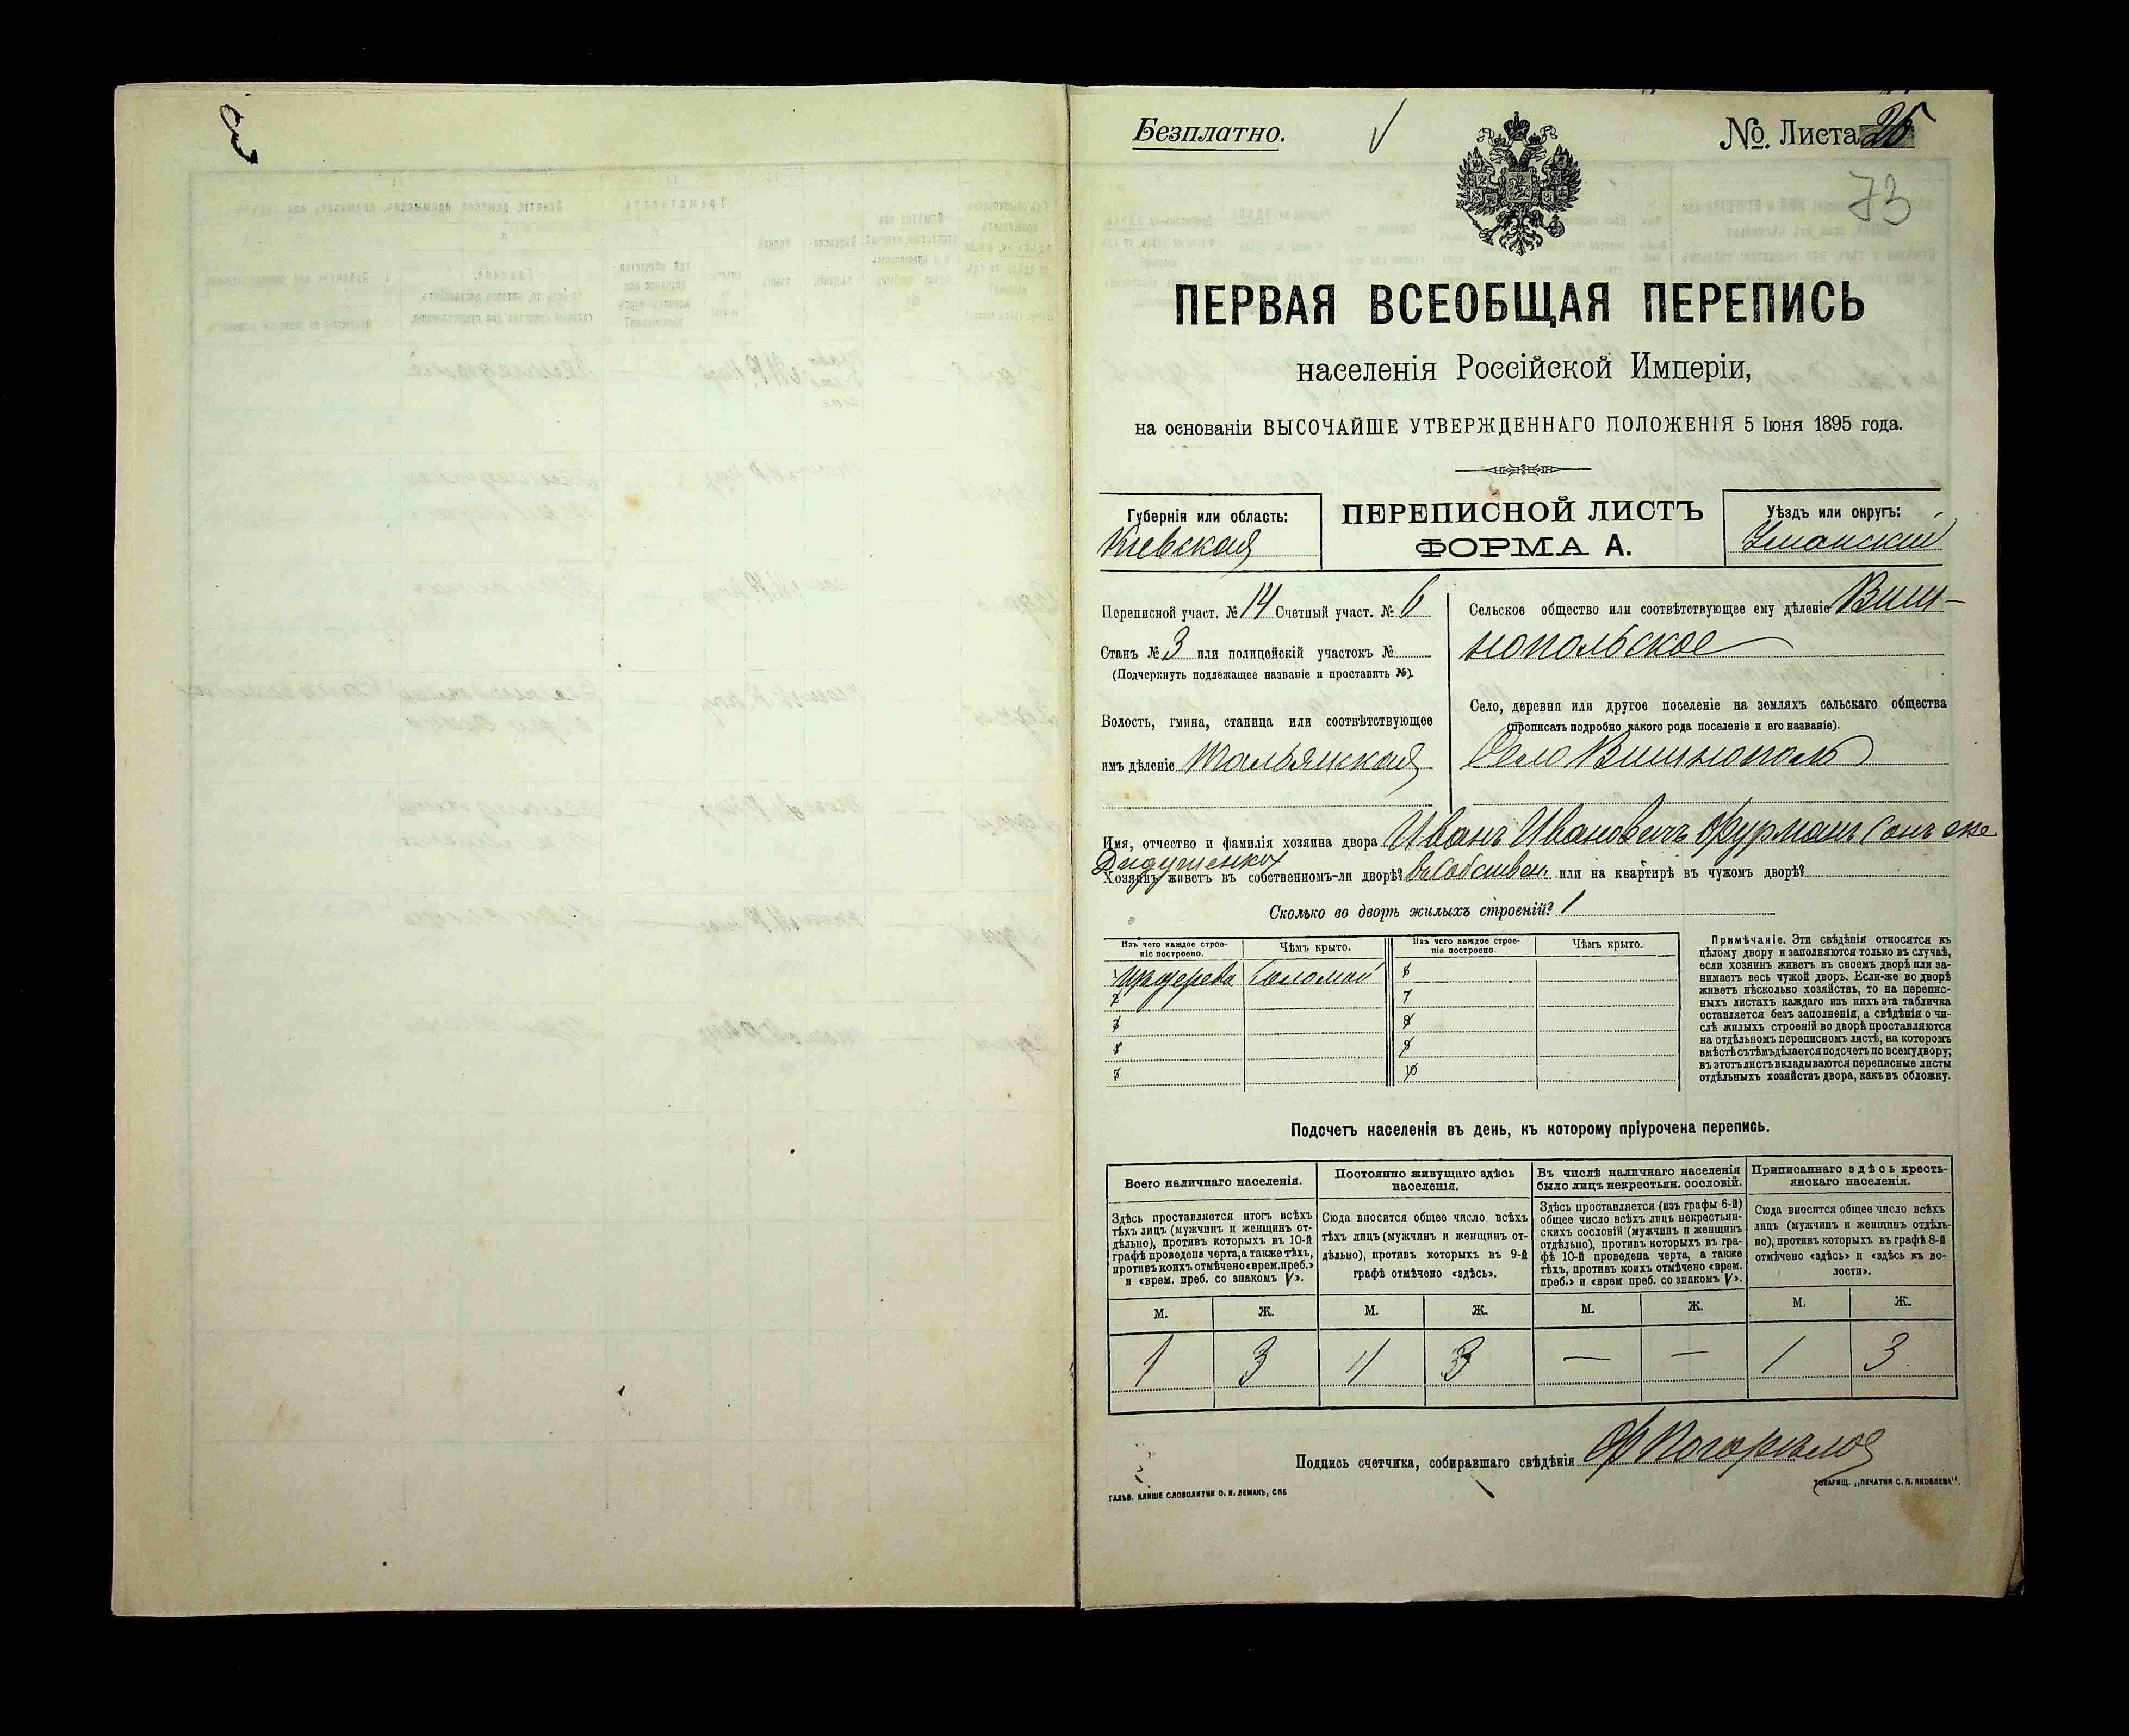 Безплатно.
№. Листа 25
73
ПЕРВАЯ ВСЕОБЩАЯ ПЕРЕПИСЬ
населенія Россійской Имперіи,
на основаніи ВЫСОЧАЙШЕ УТВЕРЖДЕННАГО ПОЛОЖЕНІЯ 5 Іюня 1895 года.
Губернія или область:
Кіевская
ПЕРЕПИСНОЙ ЛИСТЪ
ФОРМА А.
Уѣздъ или округъ:
Уманскій
Переписной участ. № 14 Счетный участ. № 6
Станъ № 3 или полицейскій участокъ №
(Подчеркнуть подлежащее названіе и проставить №).
Волость, гмина, станица или соотвѣтствующее
имъ дѣленіе Тальянская
Сельское общество или соотвѣтствующее ему дѣленіе Виш-
нопольское
Село, деревня или другое поселеніе на земляхъ сельскаго общества
(прописать подробно какого рода поселеніе и его названіе).
Село Вишнополь
Имя, отчество и фамилія хозяина двора Иванъ Ивановичъ Фурманъ онъ же
Дидушенко
Хозяинъ живетъ въ собственномъ-ли дворѣ? въ собствен. или на квартирѣ въ чужомъ дворѣ?
Сколько во дворѣ жилыхъ строеній? 1
Изъ чего каждое строе-
ніе построено.
Чѣмъ крыто.
Изъ чего каждое строе-
ніе построено.
Чѣмъ крыто.
1 Изъ дерева Соломой 6
2 7
3 8
4 9
5 10
Примѣчаніе. Эти свѣдѣнія относятся къ
цѣлому двору и заполняются только въ случаѣ,
если хозяинъ живетъ въ своемъ дворѣ или за-
нимаетъ весь чужой дворъ. Если-же во дворѣ
живетъ нѣсколько хозяйствъ, то на перепис-
ныхъ листахъ каждаго изъ нихъ эта табличка
оставляется безъ заполненія, а свѣдѣнія о чи-
слѣ жилыхъ строеній во дворѣ проставляются
на отдѣльномъ переписномъ листѣ, на которомъ
вмѣстѣ съ тѣмъ дѣлается подсчетъ по всему двору;
въ этотъ листъ вкладываются переписные листы
отдѣльныхъ хозяйствъ двора, какъ въ обложку.
Подсчетъ населенія въ день, къ которому пріурочена перепись.
Всего наличнаго населенія.
Здѣсь проставляется итогъ всѣхъ
тѣхъ лицъ (мужчинъ и женщинъ от-
дѣльно), противъ которыхъ въ 10-й
графѣ проведена черта, а также тѣхъ,
противъ коихъ отмѣчено «врем. преб.»
и «врем. преб. со знакомъ V».
Постоянно живущаго здѣсь
населенія.
Сюда вносится общее число всѣхъ
тѣхъ лицъ (мужчинъ и женщинъ от-
дѣльно), противъ которыхъ въ 9-й
графѣ отмѣчено «здѣсь».
Въ числѣ наличнаго населенія
было лицъ некрестьян. сословій.
Здѣсь проставляется (изъ графы 6-й)
общее число всѣхъ лицъ некрестьян-
скихъ сословій (мужчинъ и женщинъ
отдѣльно), противъ которыхъ въ гра-
фѣ 10-й проведена черта, а также
тѣхъ, противъ коихъ отмѣчено «врем.
преб.» и «врем преб. со знакомъ V».
Приписаннаго здѣсь кресть-
янскаго населенія.
Сюда вносится общее число всѣхъ
лицъ (мужчинъ и женщинъ отдѣль-
но), противъ которыхъ въ графѣ 8-й
отмѣчено «здѣсь» и «здѣсь въ во-
лости».
М. Ж. М. Ж. М. Ж. М. Ж.
1 3 1 3 — — 1 3
Подпись счетчика, собиравшаго свѣдѣнія
ГАЛЬВ. КЛИШЕ СЛОВОЛИТНИ О. И. ЛЕМАНЪ, СПБ
ТОВАРИЩ. „ПЕЧАТНЯ С. П. ЯКОВЛЕВА".